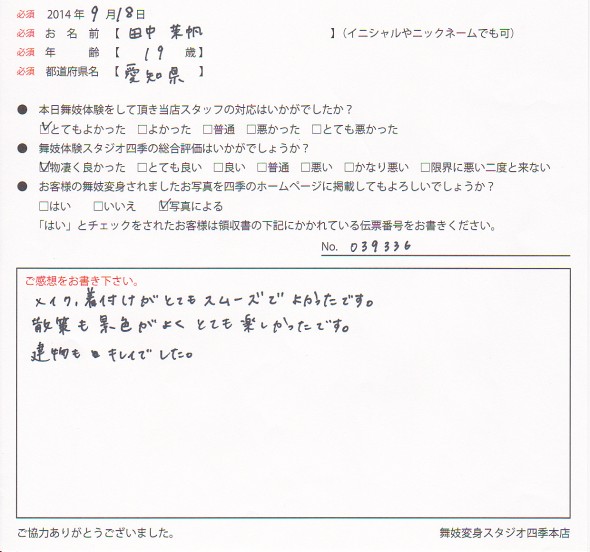 必須 2014年 9月18日
必須 お名前【 田中 茉帆 】(イニシャルやニックネームでも可)
必須 年齢【 19 歳】
必須 都道府県名【 愛知県 】
● 本日舞妓体験をして頂き当店スタッフの対応はいかがでしたか?
☑とてもよかった □よかった □普通 □悪かった □とても悪かった
● 舞妓体験スタジオ四季の総合評価はいかがでしょうか?
☑物凄く良かった □とても良い □良い □普通 □悪い □かなり悪い □限界に悪い二度と来ない
● お客様の舞妓変身されましたお写真を四季のホームページに掲載してもよろしいでしょうか?
□はい □いいえ ☑写真による
「はい」とチェックをされたお客様は領収書の下記にかかれている伝票番号をお書きください。
No. 039336
ご感想をお書き下さい。
メイク、着付けがとてもスムーズでよかったです。
散策も景色がよくとても楽しかったです。
建物もキレイでした。
ご協力ありがとうございました。 舞妓変身スタジオ四季本店